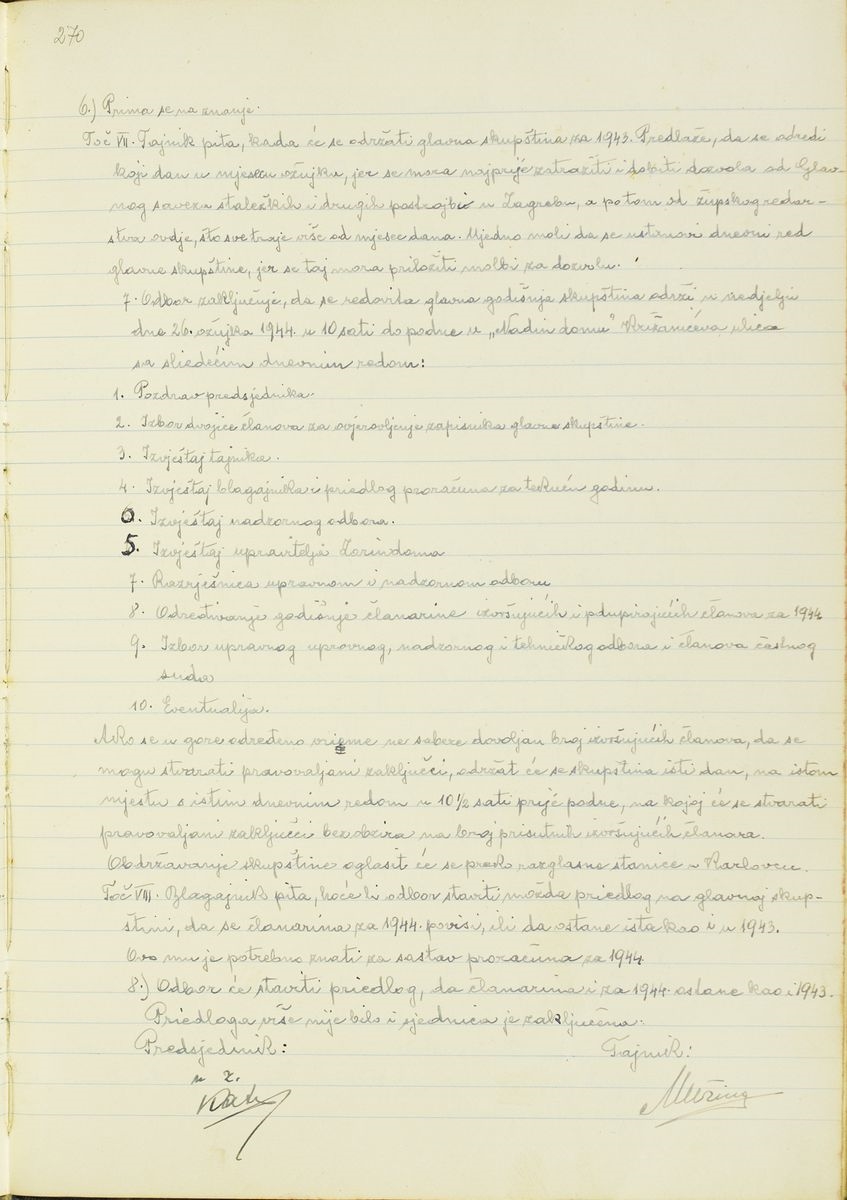 270
6.) Prima se na znanje.
Toč VII. Tajnik pita, kada će se održati glavna skupština za 1943. Predlaže, da se odredi
koji dan u mjesecu ožujku, jer se mora najprije zatražiti i dobiti dozvola od Glav-
nog saveza staležkih i drugih postrojbi u Zagrebu, a potom od župskog redar-
stva ovdje, što sve traje više od mjesec dana. Ujedno moli da se ustanovi dnevni red
glavne skupštine, jer se taj mora priložiti molbi za dozvolu.
7. Odbor zaključuje, da se redovita glavna godišnja skupština održi u nedjelju
dne 26. ožujka 1944. u 10 sati do podne u „Nadin domu" Križanićeva ulica
sa sliedećim dnevnim redom:
1. Pozdrav predsjednika.
2. Izbor dvojice članova za ovjerovljenje zapisnika glavne skupštine.
3. Izvještaj tajnika.
4. Izvještaj blagajnika i priedlog proračuna za tekuću godinu.
6. Izvještaj nadzornog odbora.
5. Izvještaj upravitelja Zorin doma
7. Razrješnica upravnom i nadzornom odboru
8. Određivanje godišnje članarine izvršujućih i podupirajućih članova za 1944
9. Izbor upravnog upravnog, nadzornog i tehničkog odbora i članova častnog
suda
10. Eventualija.
Ako se u gore određeno vrieme ne sabere dovoljan broj izvršujućih članova, da se
mogu stvarati pravovaljani zaključci, održat će se skupština isti dan, na istom
mjestu s istim dnevnim redom u 10 1/2 sati prije podne, na kojoj će se stvarati
pravovaljani zaključci bez obzira na broj prisutnih izvršujućih članova.
Obdržavanje skupštine oglasit će se preko razglasne stanice u Karlovcu.
Toč VIII. Blagajnik pita, hoće li odbor staviti možda priedlog na glavnoj skup-
štini, da se članarina za 1944. povisi, ili da ostane ista kao i u 1943.
Ovo mu je potrebno znati za sastav proračuna za 1944.
8.) Odbor će staviti priedlog, da članarina i za 1944. ostane kao i 1943.
Priedloga više nije bilo i sjednica je zaključena.
Predsjednik: Tajnik: